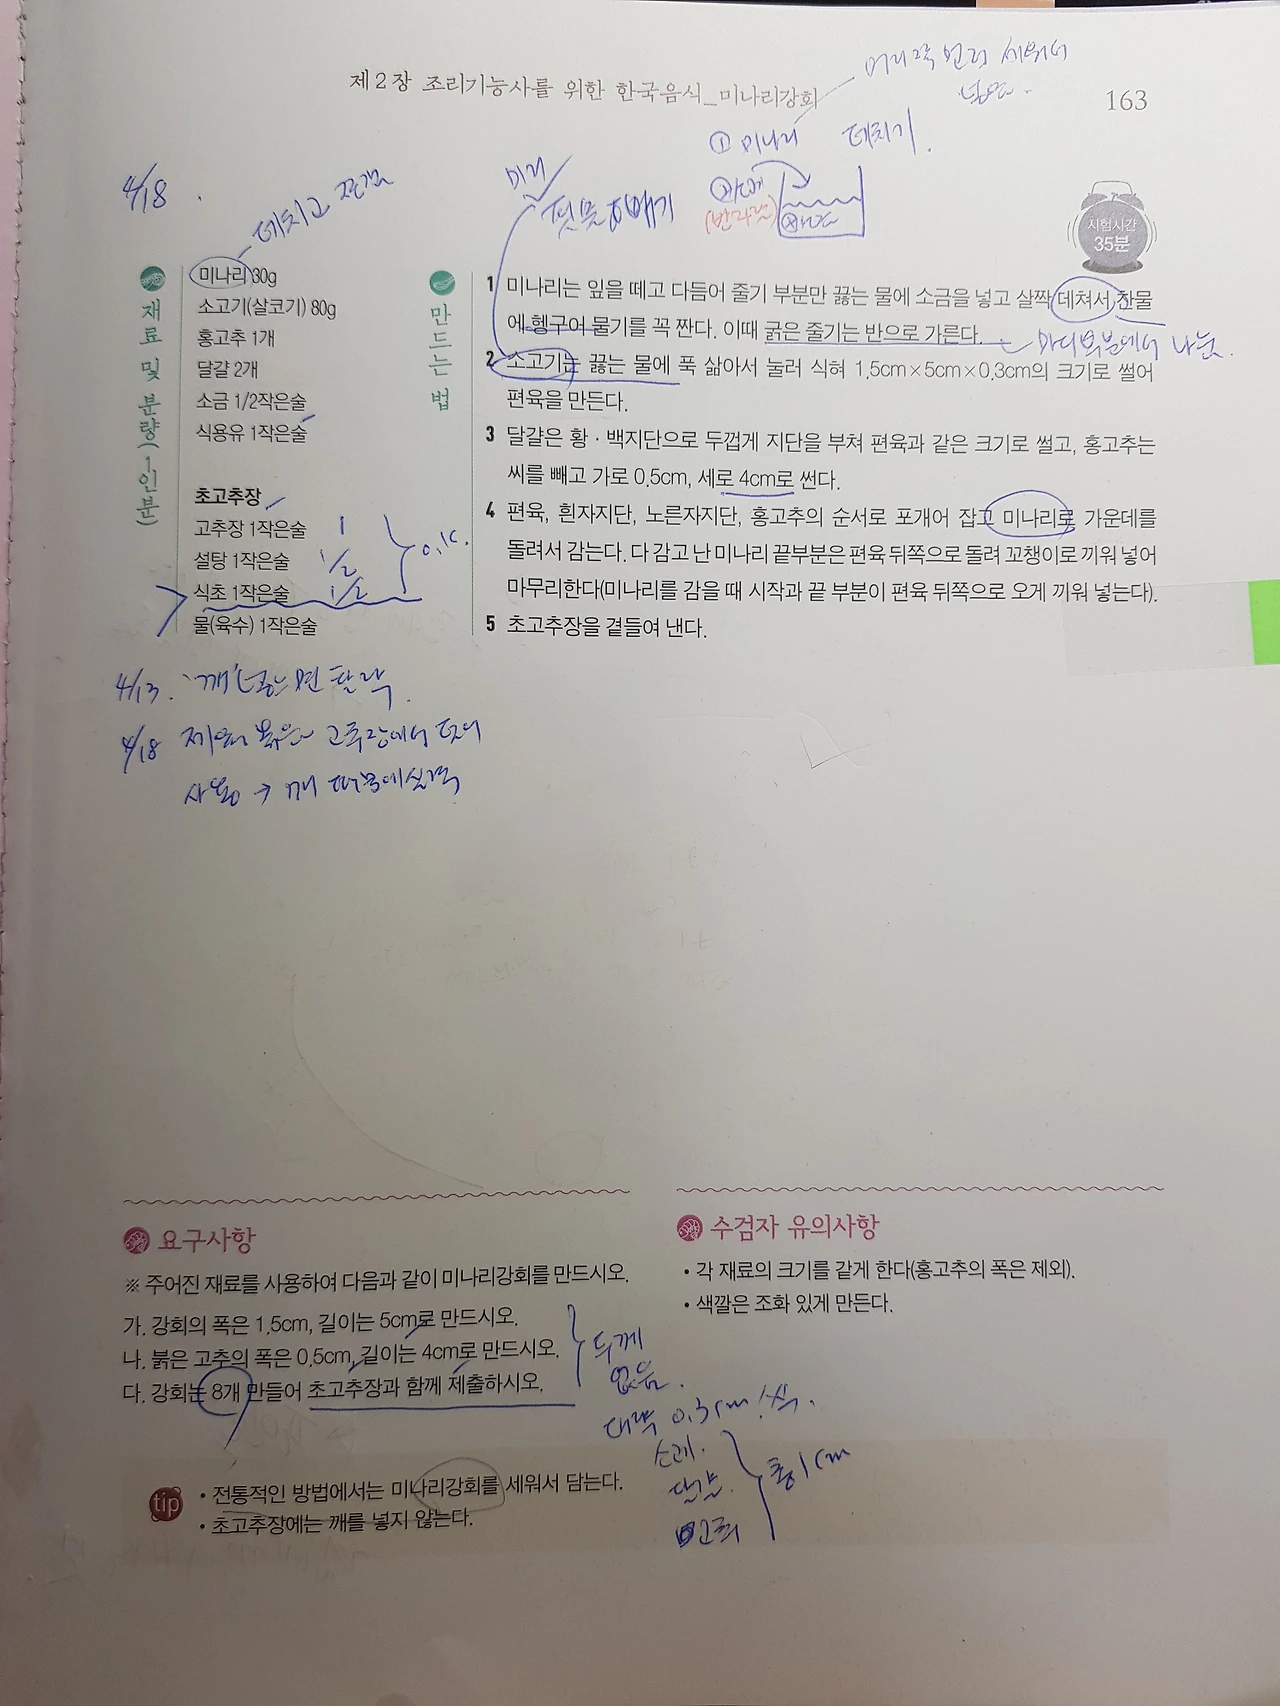 제2장 조리기능사를 위한 한국음식_미나리강회
163
① 미나리 데치기.
4/18.
데치고
미리
핏물 빼기
시험시간
35분
재료 및 분량(1인분)
미나리 30g
소고기(살코기) 80g
홍고추 1개
달걀 2개
소금 1/2작은술
식용유 1작은술
초고추장
고추장 1작은술 1
설탕 1작은술 1/2
식초 1작은술 1/2
물(육수) 1작은술
만드는 법
1 미나리는 잎을 떼고 다듬어 줄기 부분만 끓는 물에 소금을 넣고 살짝 데쳐서 찬물
에 헹구어 물기를 꼭 짠다. 이때 굵은 줄기는 반으로 가른다.
2 소고기는 끓는 물에 푹 삶아서 눌러 식혀 1.5cm×5cm×0.3cm의 크기로 썰어
편육을 만든다.
3 달걀은 황·백지단으로 두껍게 지단을 부쳐 편육과 같은 크기로 썰고, 홍고추는
씨를 빼고 가로 0.5cm, 세로 4cm로 썬다.
4 편육, 흰자지단, 노른자지단, 홍고추의 순서로 포개어 잡고 미나리로 가운데를
돌려서 감는다. 다 감고 난 미나리 끝부분은 편육 뒤쪽으로 돌려 꼬챙이로 끼워 넣어
마무리한다(미나리를 감을 때 시작과 끝 부분이 편육 뒤쪽으로 오게 끼워 넣는다).
5 초고추장을 곁들여 낸다.
4/13. 깨 넣는 면 탈락.
4/18 볶은 고추장에서
사용 → 깨 때문에 실격
요구사항
※ 주어진 재료를 사용하여 다음과 같이 미나리강회를 만드시오.
가. 강회의 폭은 1.5cm, 길이는 5cm로 만드시오.
나. 붉은 고추의 폭은 0.5cm, 길이는 4cm로 만드시오.
다. 강회는 8개 만들어 초고추장과 함께 제출하시오.
두께
없음.
대략 0.3cm
총 1cm
수검자 유의사항
• 각 재료의 크기를 같게 한다(홍고추의 폭은 제외).
• 색깔은 조화 있게 만든다.
tip
• 전통적인 방법에서는 미나리강회를 세워서 담는다.
• 초고추장에는 깨를 넣지 않는다.